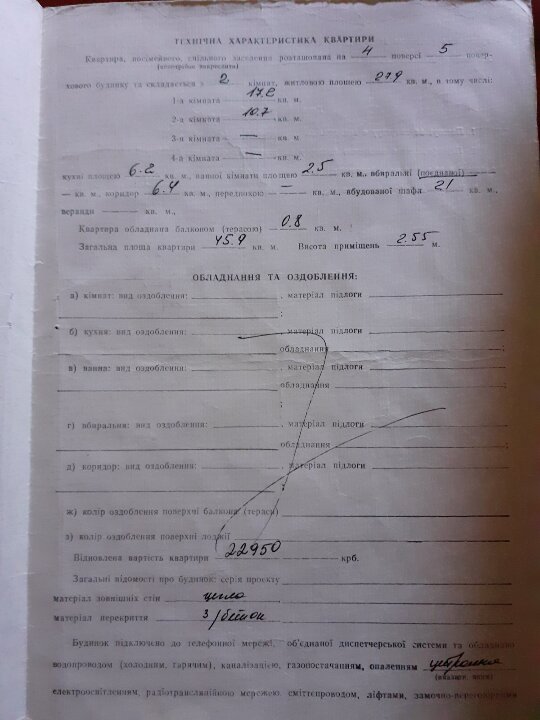 ТЕХНІЧНА ХАРАКТЕРИСТИКА КВАРТИРИ
Квартира, посімейного, спільного заселення розташована на 4 поверсі 5 повер-
(непотрібне закреслити)
хового будинку та складається з 2 кімнат, житловою площею 27.9 кв. м., в тому числі:
1-а кімната 17.2 кв. м.
2-а кімната 10.7 кв. м.
3-я кімната — кв. м.
4-а кімната — кв. м.
кухні площею 6.2 кв. м., ванної кімнати площею 2.5 кв. м., вбиральні (поєднаної)
— кв. м., коридор 6.4 кв. м., передпокою — кв. м., вбудованої шафа кв. м.,
веранди — кв. м.,
Квартира обладнана балконом (терасою) 0.8 кв. м.
Загальна площа квартири 45.9 кв. м. Висота приміщень 2.55 м.
ОБЛАДНАННЯ ТА ОЗДОБЛЕННЯ:
а) кімнат: вид оздоблення: , матеріал підлоги
;
б) кухня: вид оздоблення: , матеріал підлоги
обладнання ;
в) ванна: вид оздоблення: , матеріал підлоги
обладнання ;
;
г) вбиральня: вид оздоблення: , матеріал підлоги
обладнання ;
д) коридор: вид оздоблення: , матеріал підлоги
;
ж) колір оздоблення поверхчі балкона (тераси)
з) колір оздоблення поверхні лоджії
Відновлена вартість квартири 22950 крб.
Загальні відомості про будинок: серія проекту
матеріал зовнішніх стін цегла
матеріал перекриття з/бетон
Будинок підключено до телефонної мережі, об'єднаної диспетчерської системи та обладнано
водопроводом (холодним, гарячим), каналізацією, газопостачанням, опаленням
(вказати яким)
електроосвітленням, радіотрансляційною мережею, сміттєпроводом, ліфтами, замочно-переговорним